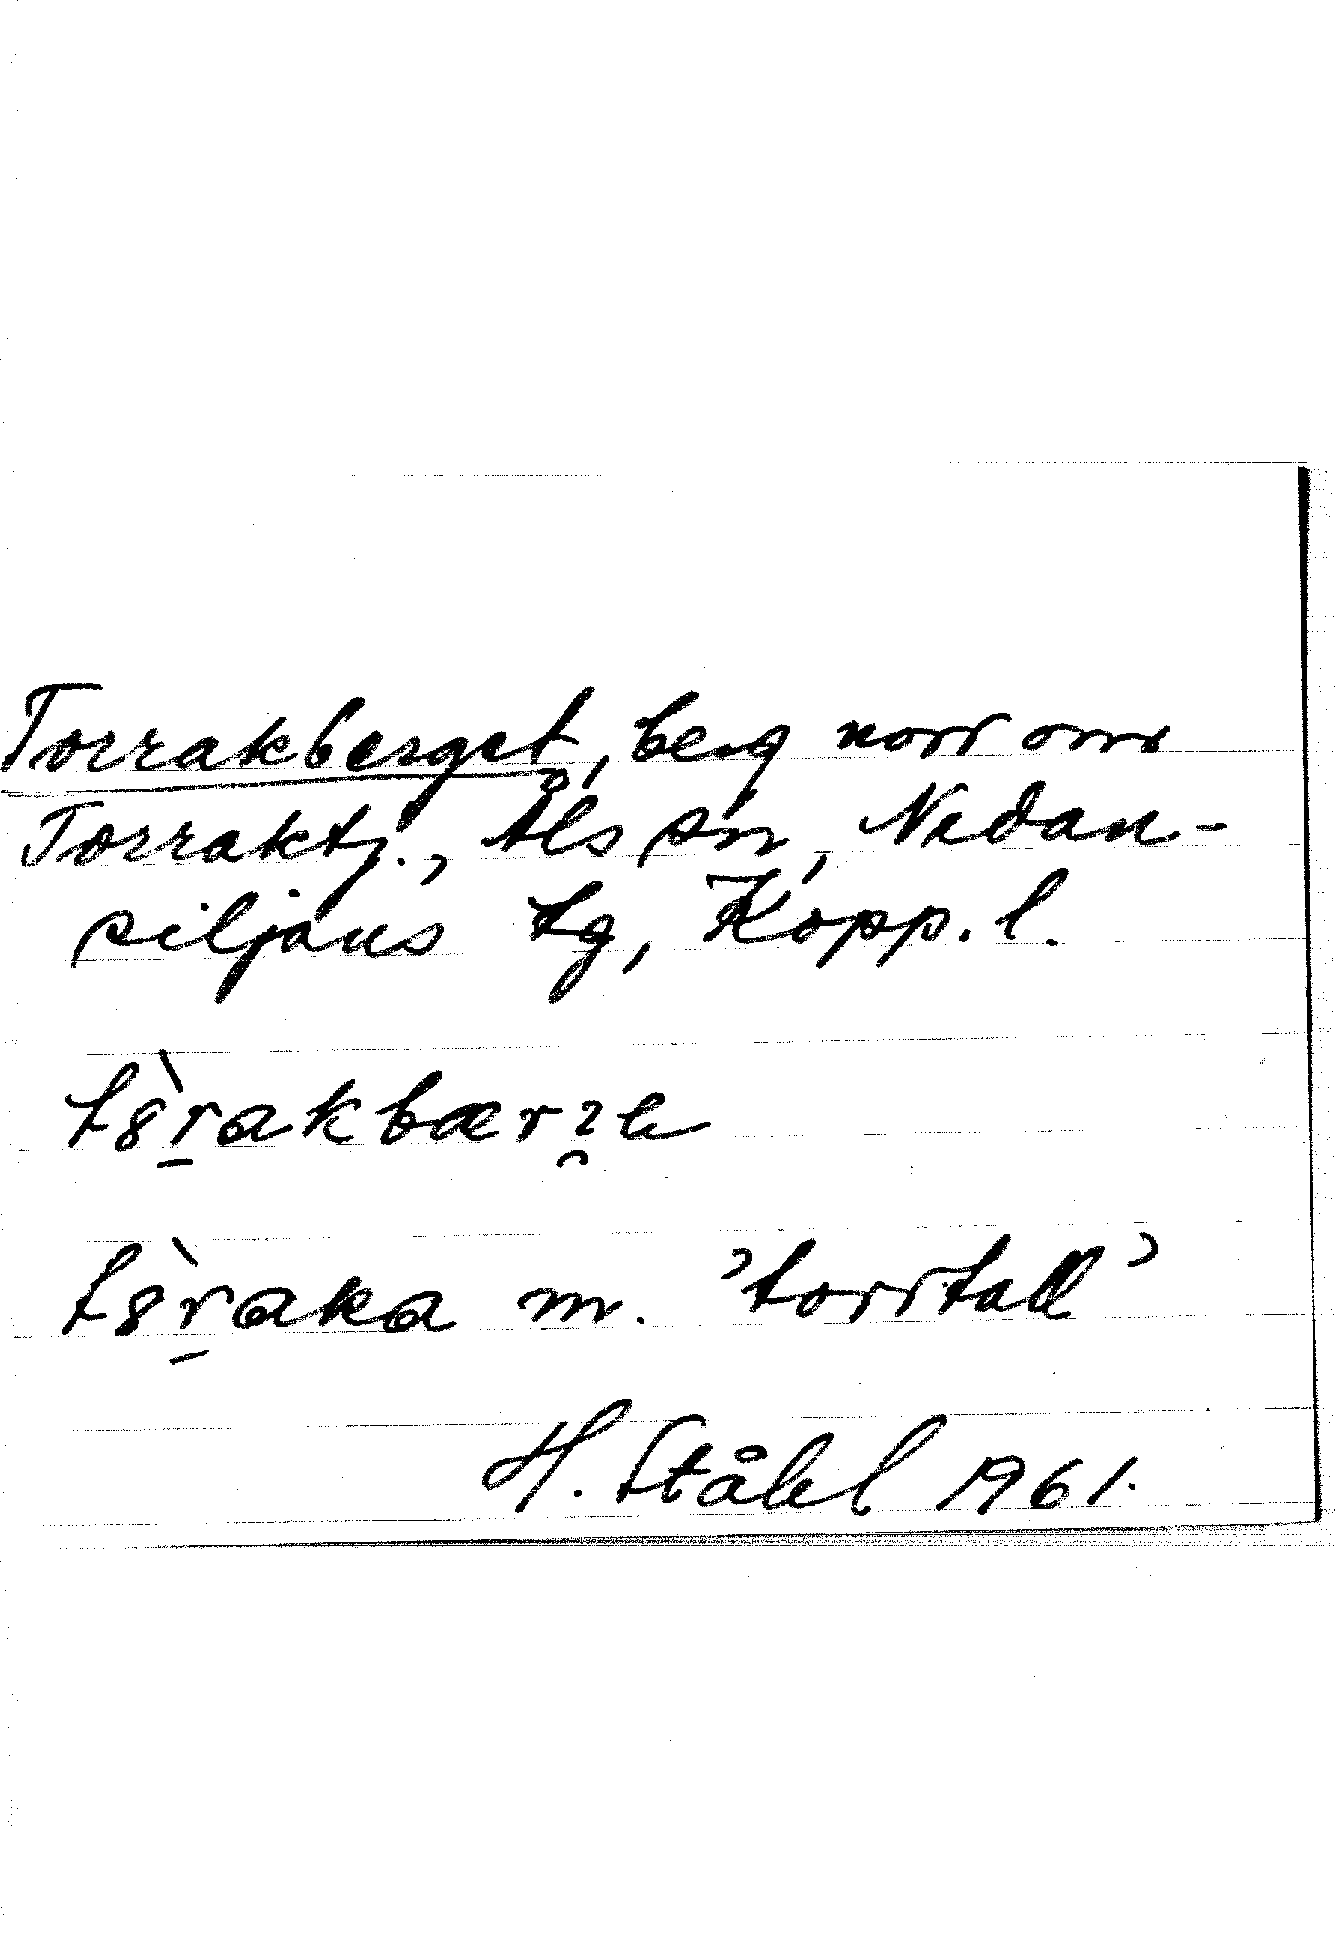 Torrakberget, berg norr om
Torraktj., Åls sn, Nedan-
siljans tg, Kopp. l.
tɞ̀r̠akbærɂ̯e
tɞ̀r̠aka m. ’torrtall’
H. Ståhl 1961.